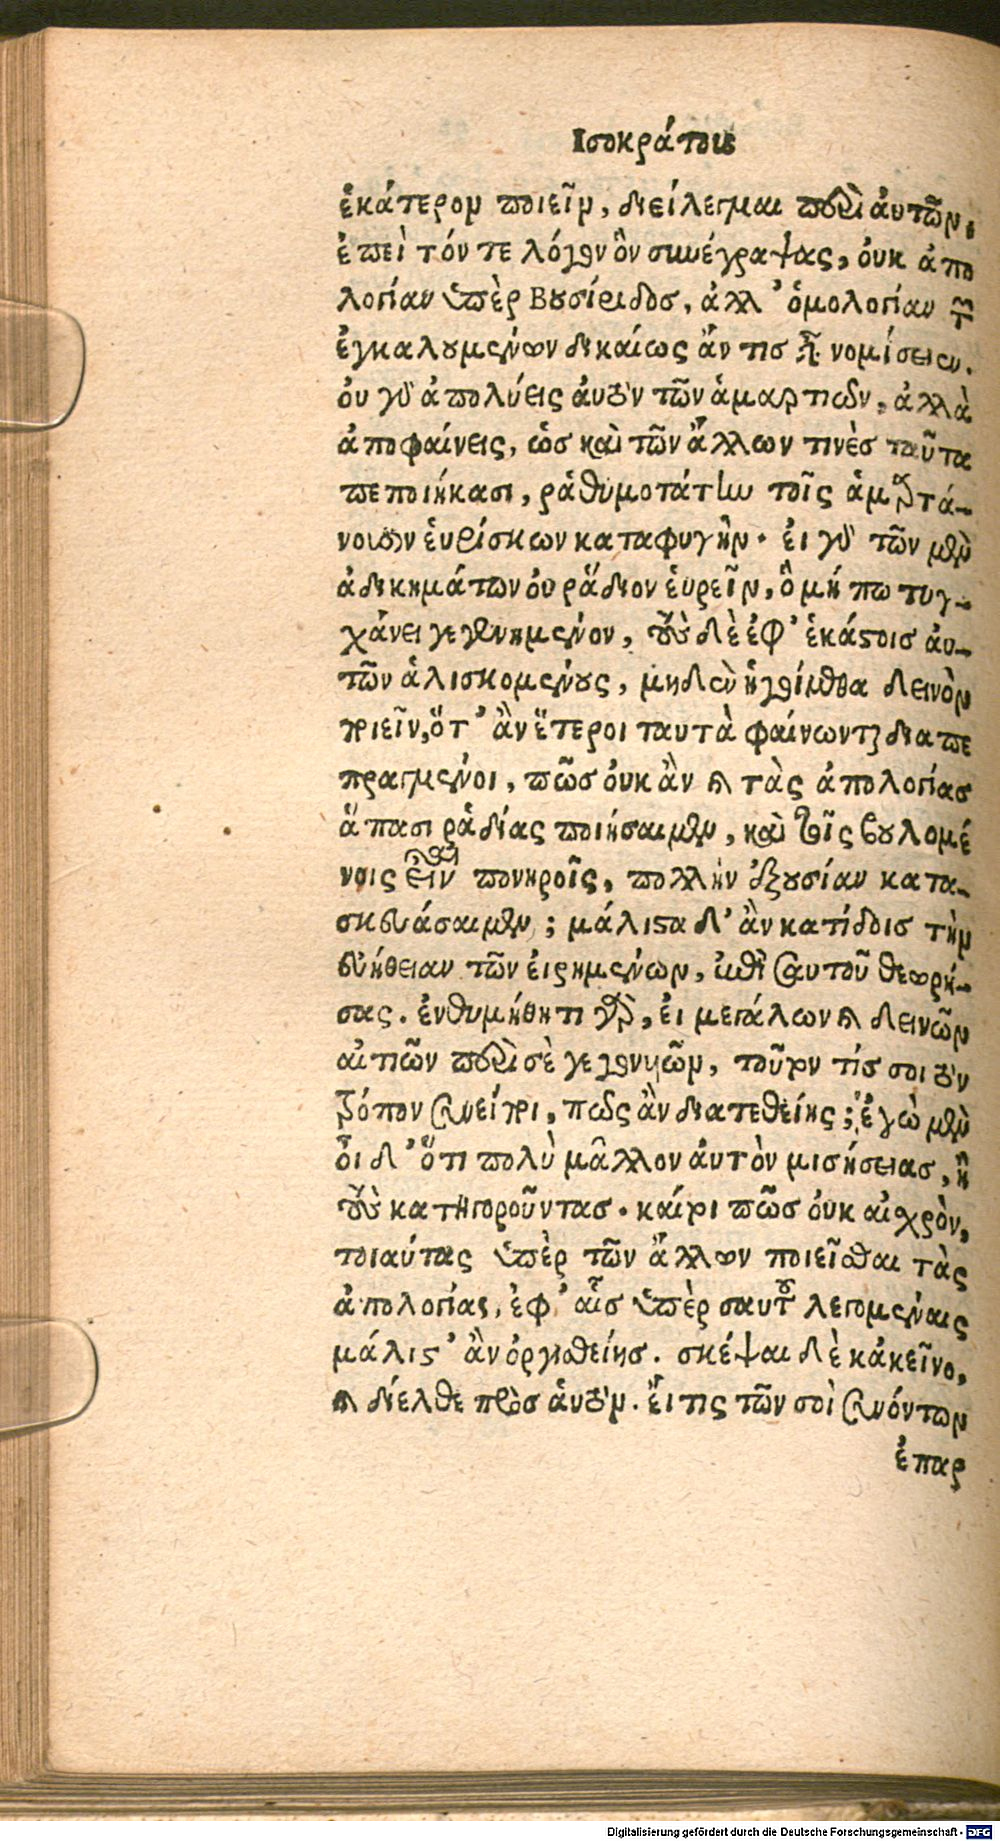 Ισοκράτους
ἑκάτερον ποιεῖν, διείλεγμαι περὶ ἀυτῶν,
ἐπεὶ τόν τε λόγον ὃν συνέγραψας, ὀυκ ἀπο
λογίαν ὑπὲρ Βουσίριδος, ἀλλ' ὁμολογίαν τῶν
ἐγκαλουμένων δικαίως ἄν τις νομίσειεν.
ὀυ γὰρ ἀπολύεις ἀυτὸν τῶν ἁμαρτιῶν, ἀλλὰ
ἀποφαίνεις, ὡς καὶ τῶν ἄλλων τινὲς ταῦτα
πεποιήκασι, ῥαθυμοτάτην τοῖς ἁμαρτά-
νουσιν ἑυρίσκων καταφυγήν. ἐι γὰρ τῶν μὲν
ἀδικημάτων ὀυ ῥάδιον ἑυρεῖν, ὃ μή πω τυγ-
χάνει γεγενημένον, τοὺς δὲ ἐφ' ἑκάστοις ἀυ-
τῶν ἁλισκομένους, μηδὲν ἡγοίμεθα δεινὸν
ποιεῖν, ὅτ' ἂν ἕτεροι ταυτὰ φαίνωνται διαπε
πραγμένοι, πῶς ὀυκ ἂν καὶ τὰς ἀπολογίας
ἅπασι ῥᾳδίας ποιήσαιμεν, καὶ τοῖς βουλομέ
νοις εἶναι πονηροῖς, πολλὴν ἐξουσίαν κατα-
σκευάσαιμεν; μάλιστα δ' ἂν κατίδοις τὴν
ἐυήθειαν τῶν ἐιρημένων, ἐπὶ σαυτοῦ θεωρή-
σας. ἐνθυμήθητι γὰρ, ἐι μεγάλων καὶ δεινῶν
αἰτιῶν περὶ σὲ γεγονυιῶν, τοῦτόν τίς σοι τὸν
τρόπον συνείποι, πῶς ἂν διατεθείης; ἐγὼ μὲν
οἶδ' ὅτι πολὺ μᾶλλον ἀυτὸν μισήσειας, ἢ
τοὺς κατηγοροῦντας. καίτοι πῶς ὀυκ αἰσχρὸν,
τοιαύτας ὑπὲρ τῶν ἄλλων ποιεῖσθαι τὰς
ἀπολογίας, ἐφ' αἷς ὑπὲρ σαυτοῦ λεγομέναις
μάλιστ' ἂν ὀργισθείης. σκέψαι δὲ κἀκεῖνο,
καὶ δίελθε πρὸς ἁυτόν. ἔι τις τῶν σοὶ συνόντων
ἐπαρ
Digitalisierung gefördert durch die Deutsche Forschungsgemeinschaft - DFG